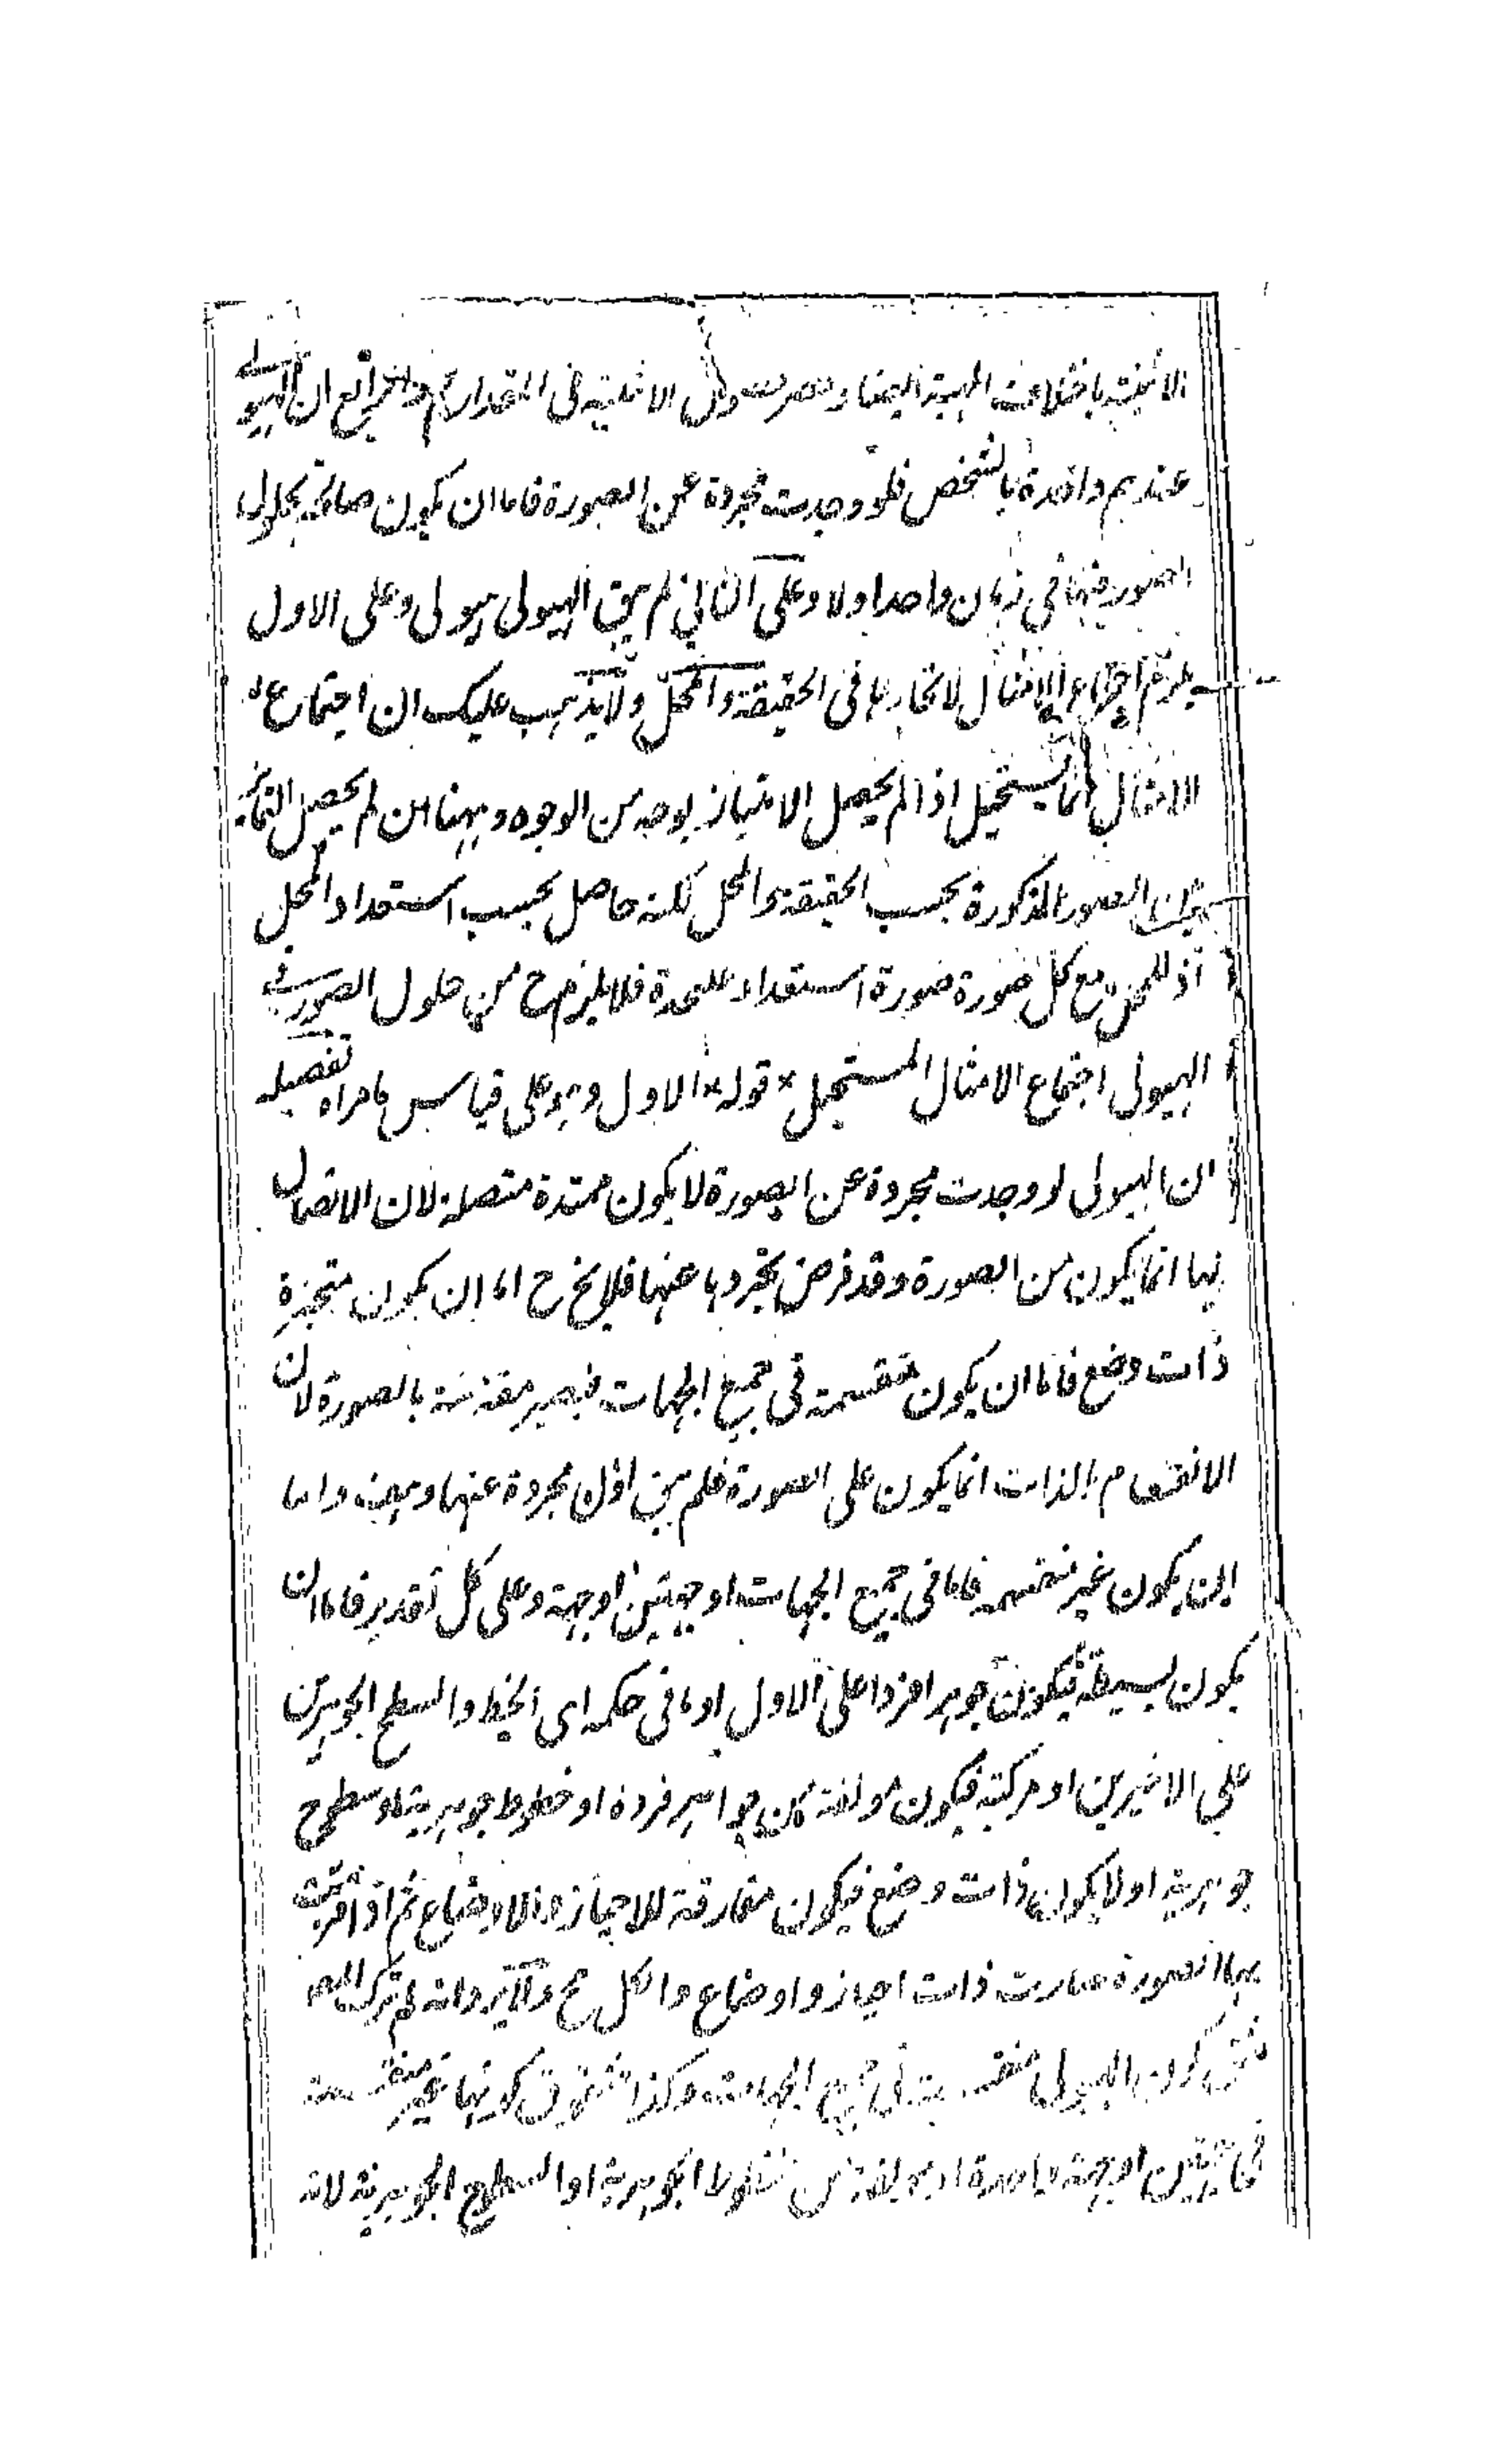 الاثنينية باختلاف المهية ايضا و الاثنينية فى المقدار ان الهيولى
عندهم واحدة بالشخص فلو وجدت مجردة عن الصورة فاما ان يكون صالحة لحلول
الصور فيها فى زمان واحد اولا وعلى الثانى لم يبق الهيولى هيولى وعلى الاول
يلزم اجتماع الامثال لاتحادها فى الحقيقة والمحل ولا يذهب عليك ان اجتماع
الامثال انما يستحيل اذا لم يحصل الامتياز بوجه من الوجوه وههنا ان لم يحصل التمايز
بين الصور المذكورة بحسب الحقيقة والمحل لكنه حاصل بحسب استعداد المحل
اذ للمحل مع كل صورة صورة استعداد علىحدة فلا يلزم ح من حلول الصور فى
الهيولى اجتماع الامثال المستحيل * قوله * الاول وهو على قياس ما مراه تفصيله
ان الهيولى لو وجدت مجردة عن الصورة لا يكون ممتدة متصلة لان الاتصال
فيها انما يكون من الصورة وقد فرض تجردها عنها فلا يخ ح اما ان يكون متحيزة
ذات وضع فاما ان يكون منقسمة فى جميع الجهات فيصير مقترنة بالصورة لان
الانقسام بالذات انما يكون على الصورة فلم يبق مجردة عنها وهف واما
ان يكون غير منقسمة فاما فى جميع الجهات او جهتين او جهة وعلى كل تقدير فاما ان
يكون بسيطة فيكون جوهرا فردا على الاول او ما فى حكمه اى الخط والسطح الجوهرين
على الاخيرين او مركبة فيكون مولفة من جواهر فردة او خطوط جوهرية او سطوح
جوهرية او لا يكون ذات وضع فيكون مفارقة للاحياز والاوضاع ثم اذا اقترنت
بها الصورة صارت ذات احياز واوضاع والكل مح وانه لم يترك المص
شق كون الهيولى منقسمة فى جميع الجهات وكذا شقوق كونها غير منقسمة
فى جهتين او جهة واحدة او مولفة من الخطوط الجوهرية او السطوح الجوهرية لانه